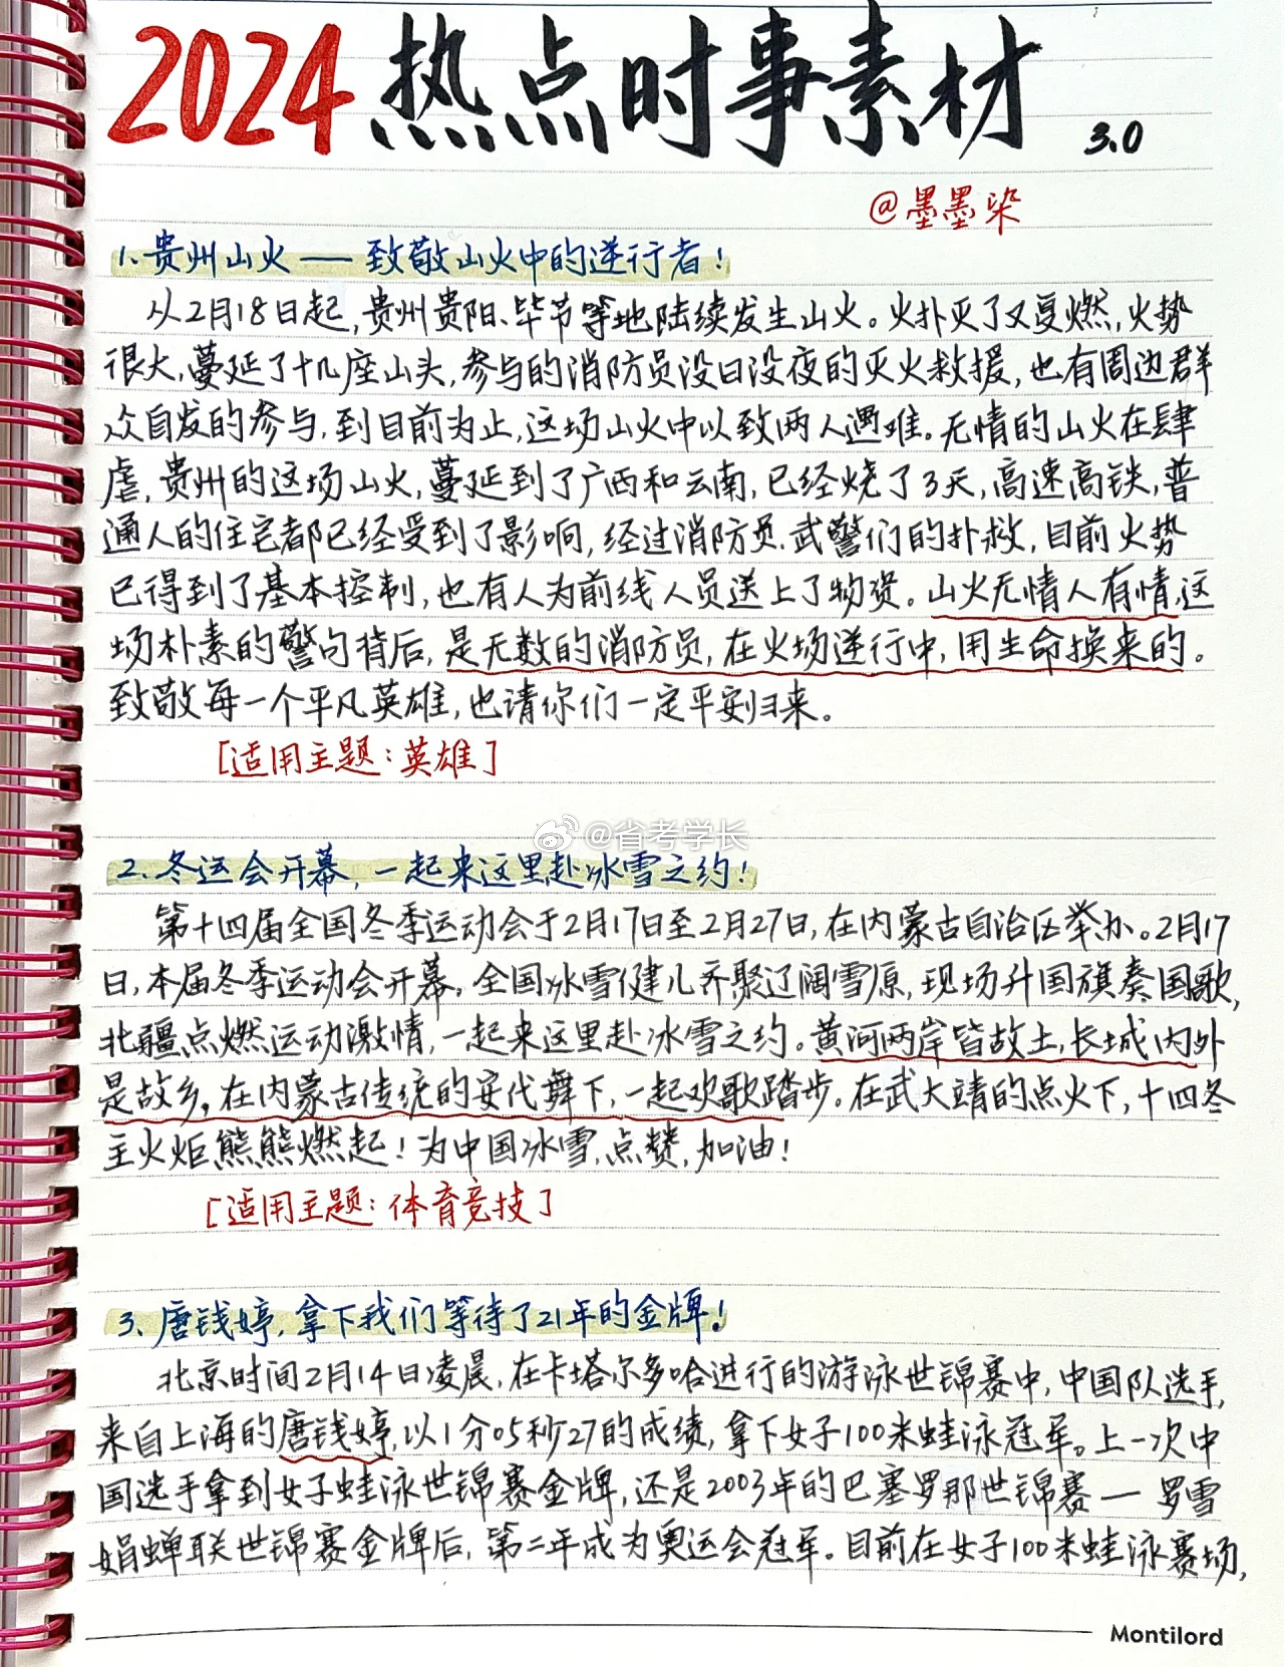 2024 热点时事素材 3.0
@墨墨染
1. 贵州山火 — 致敬山火中的逆行者!
从2月18日起,贵州贵阳、毕节等地陆续发生山火。火扑灭了又复燃,火势
很大,蔓延了十几座山头,参与的消防员没日没夜的灭火救援,也有周边群
众自发的参与,到目前为止,这场山火中以致两人遇难。无情的山火在肆
虐,贵州的这场山火,蔓延到了广西和云南,已经烧了3天,高速高铁,普
通人的住宅都已经受到了影响,经过消防员、武警们的扑救,目前火势
已得到了基本控制,也有人为前线人员送上了物资。山火无情人有情,这
场朴素的警句背后,是无数的消防员,在火场逆行中,用生命换来的。
致敬每一个平凡英雄,也请你们一定平安归来。
[适用主题:英雄]
@省考学长
2. 冬运会开幕,一起来这里赴冰雪之约!
第十四届全国冬季运动会于2月17日至2月27日,在内蒙古自治区举办。2月17
日,本届冬季运动会开幕。全国冰雪健儿齐聚辽阔雪原,现场升国旗奏国歌,
北疆点燃运动激情,一起来这里赴冰雪之约。黄河两岸皆故土,长城内外
是故乡,在内蒙古传统的安代舞下,一起欢歌踏步。在武大靖的点火下,十四冬
主火炬熊熊燃起!为中国冰雪,点赞,加油!
[适用主题:体育竞技]
3、唐钱婷,拿下我们等待了21年的金牌!
北京时间2月14日凌晨,在卡塔尔多哈进行的游泳世锦赛中,中国队选手,
来自上海的唐钱婷,以1分05秒27的成绩,拿下女子100米蛙泳冠军。上一次中
国选手拿到女子蛙泳世锦赛金牌,还是2003年的巴塞罗那世锦赛 — 罗雪
娟蝉联世锦赛金牌后,第二年成为奥运会冠军。目前在女子100米蛙泳赛场,
Montilord